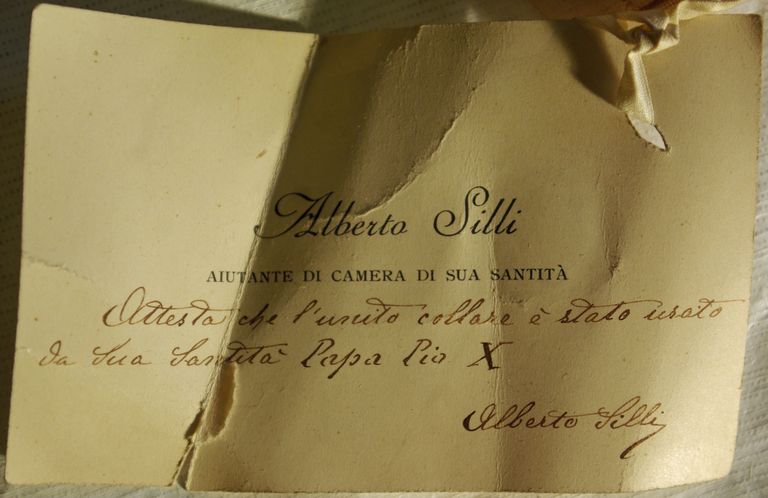 Alberto Silli
AIUTANTE DI CAMERA DI SUA SANTITÀ
Attesta che l'unito collare è stato usato
da Sua Santità Papa Pio X
Alberto Silli